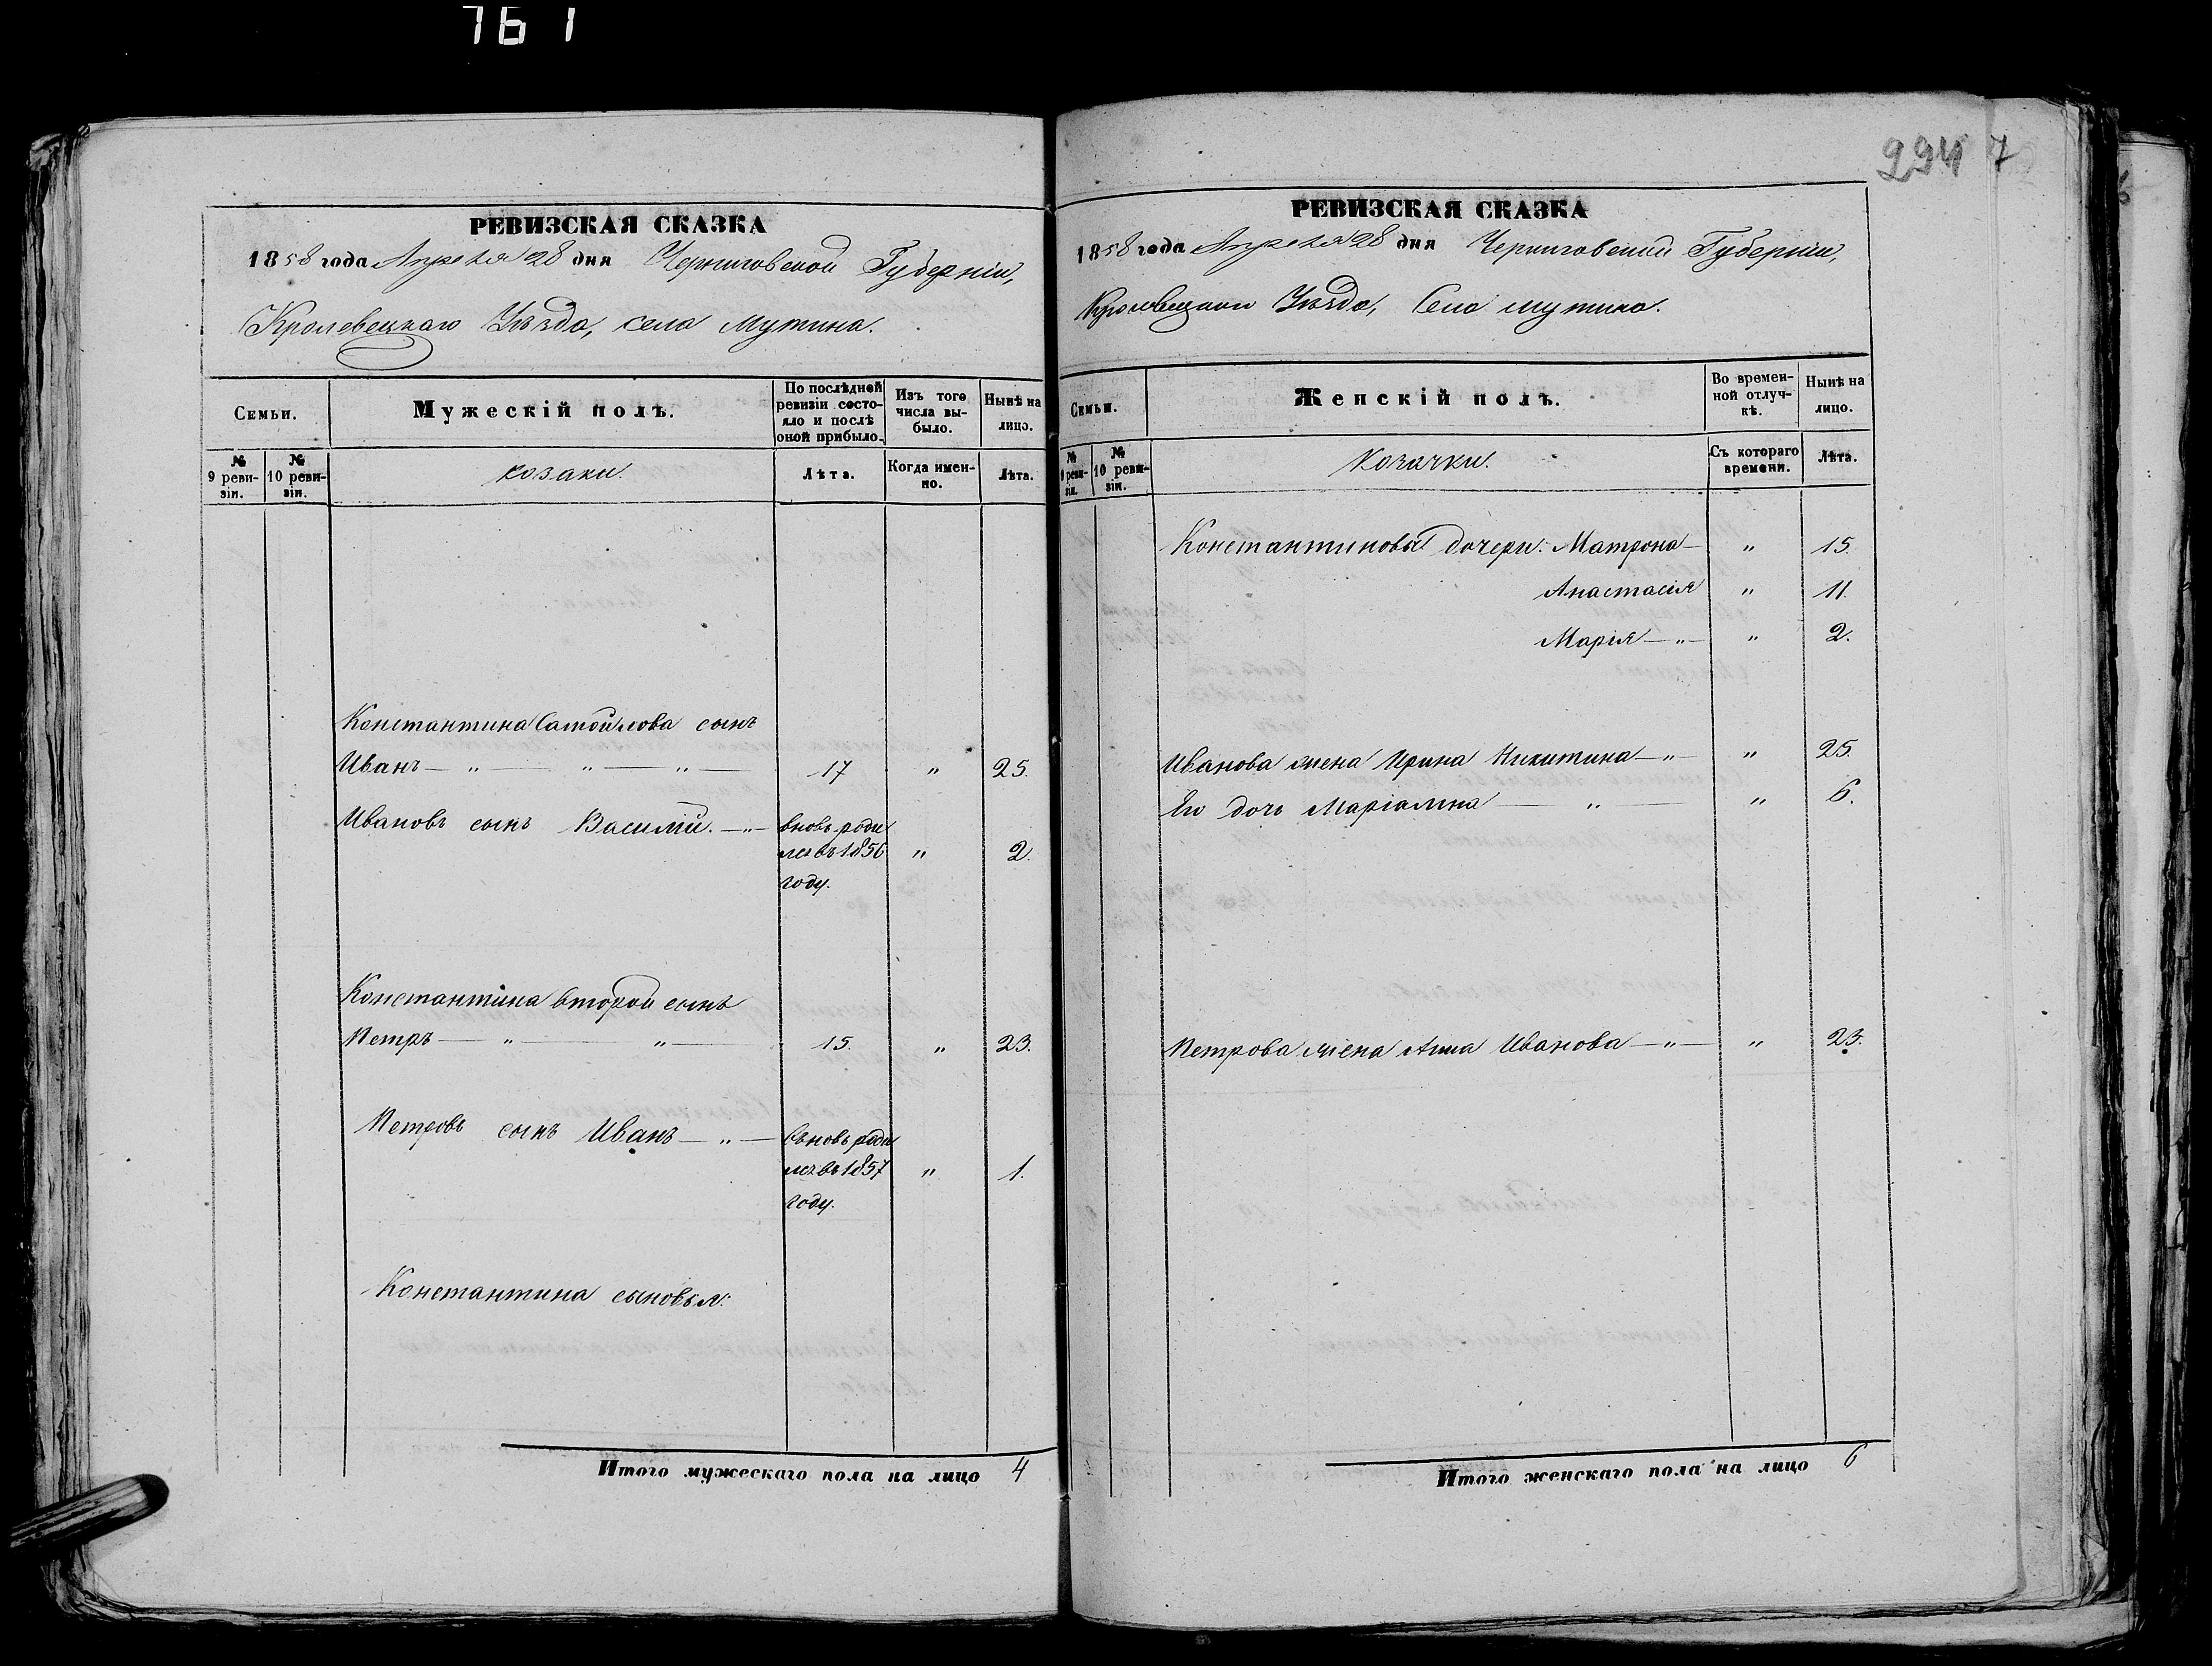 761
2947
РЕВИЗСКАЯ СКАЗКА
1858 года Апреля 28 дня Черниговской Губерніи,
Кролевецкаго Уѣзда, села Мутина.
Семьи.
Мужескій полъ.
По послѣдней ревизіи состояло и послѣ оной прибыло.
Изъ того числа выбыло.
Нынѣ на лицо.
№ 9 ревизіи.
№ 10 ревизіи.
козаки.
Лѣта.
Когда именно.
Лѣта.
Константина Самойлова сынъ
Иванъ — „ — „ — „ — 17 „ 25.
Ивановъ сынъ Василій. — „ — вновь роди
лсявъ 1856 „ 2.
году.
Константина второй сынъ
Петръ — „ — „ — 15. „ 23.
Петровъ сынъ Иванъ — „ — вновь роди
лсявъ 1857 „ 1.
году.
Константина сыновья:
Итого мужескаго пола на лицо 4
РЕВИЗСКАЯ СКАЗКА
1858 года Апреля 28 дня Черниговской Губерніи,
Кролевецкаго Уѣзда, Села Мутина.
Семьи.
Женскій полъ.
Во временной отлучкѣ.
Нынѣ на лицо.
№ 9 ревизіи.
№ 10 ревизіи.
Козачки.
Съ котораго времени.
Лѣта.
Константиновы дочери: Матрона — „ 15.
Анастасія „ 11.
Марія — „ — „ 2.
Иванова жена Ирина Никитина — „ — „ 25.
Его дочь Маріамна — „ — „ 6.
Петрова жена Анна Иванова — „ — „ 23.
Итого женскаго пола на лицо 6